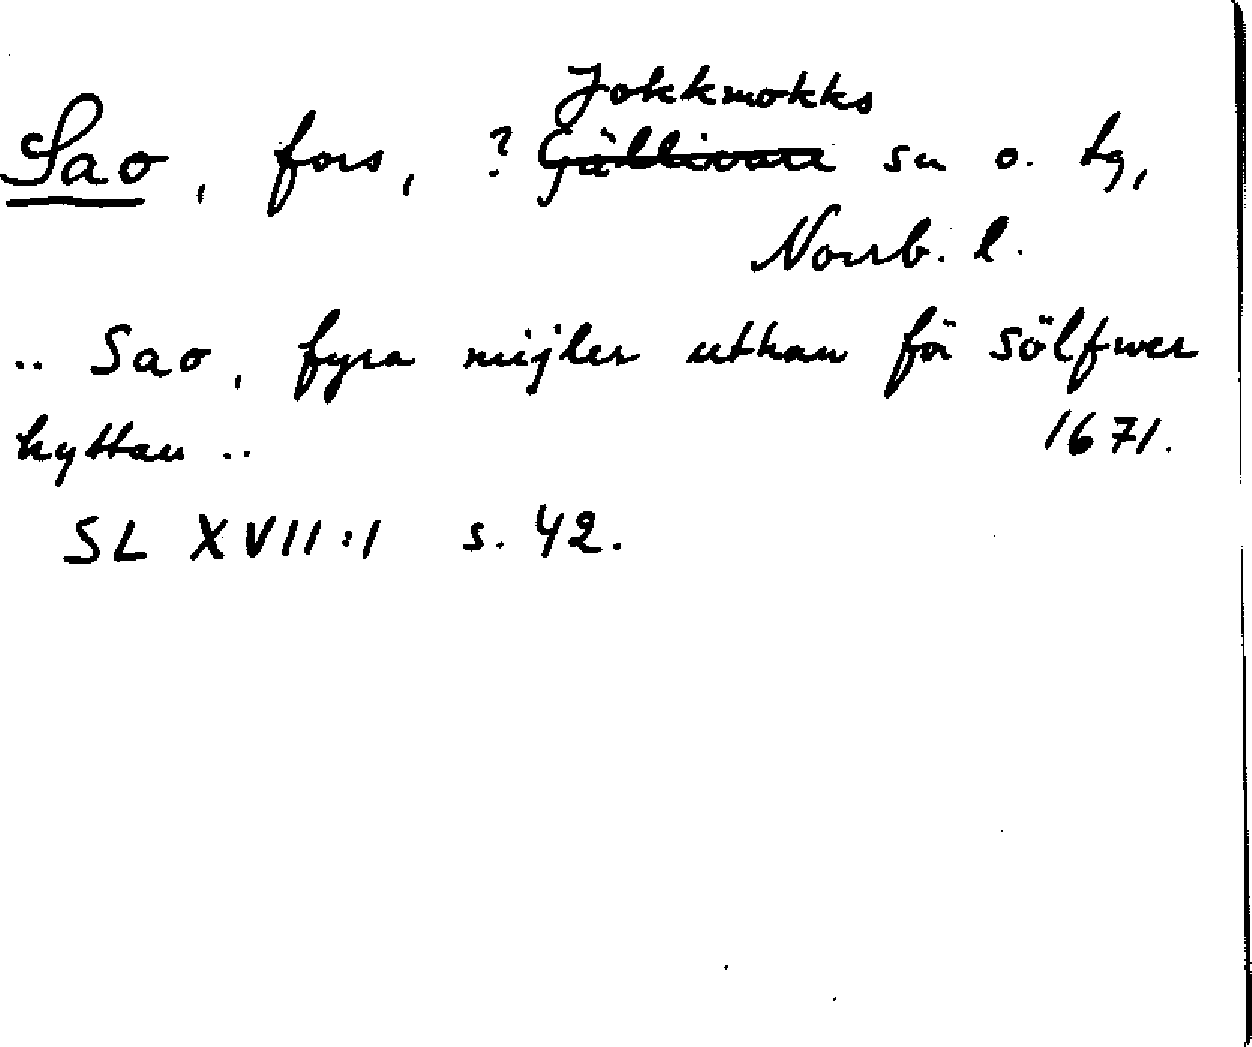 Jokkmokks
Sao, fors, ? Gällivare sn o. tg,
Norrb. l.
.. Sao, fyra mijler uthan för Sölfwer
hyttan .. 1671.
SL XVII:1 s. 42.